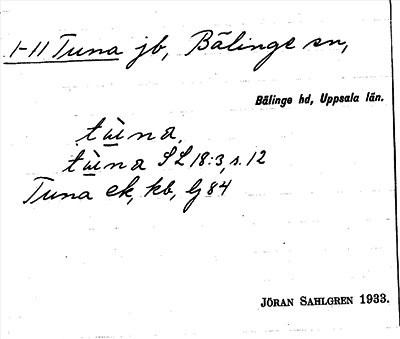 1-11 Tuna jb, Bälinge sn,
Bälinge hd, Uppsala län.
tùna,
tùna SL 18:3, s. 12
Tuna ek, kb, lj 84
JÖRAN SAHLGREN 1933.